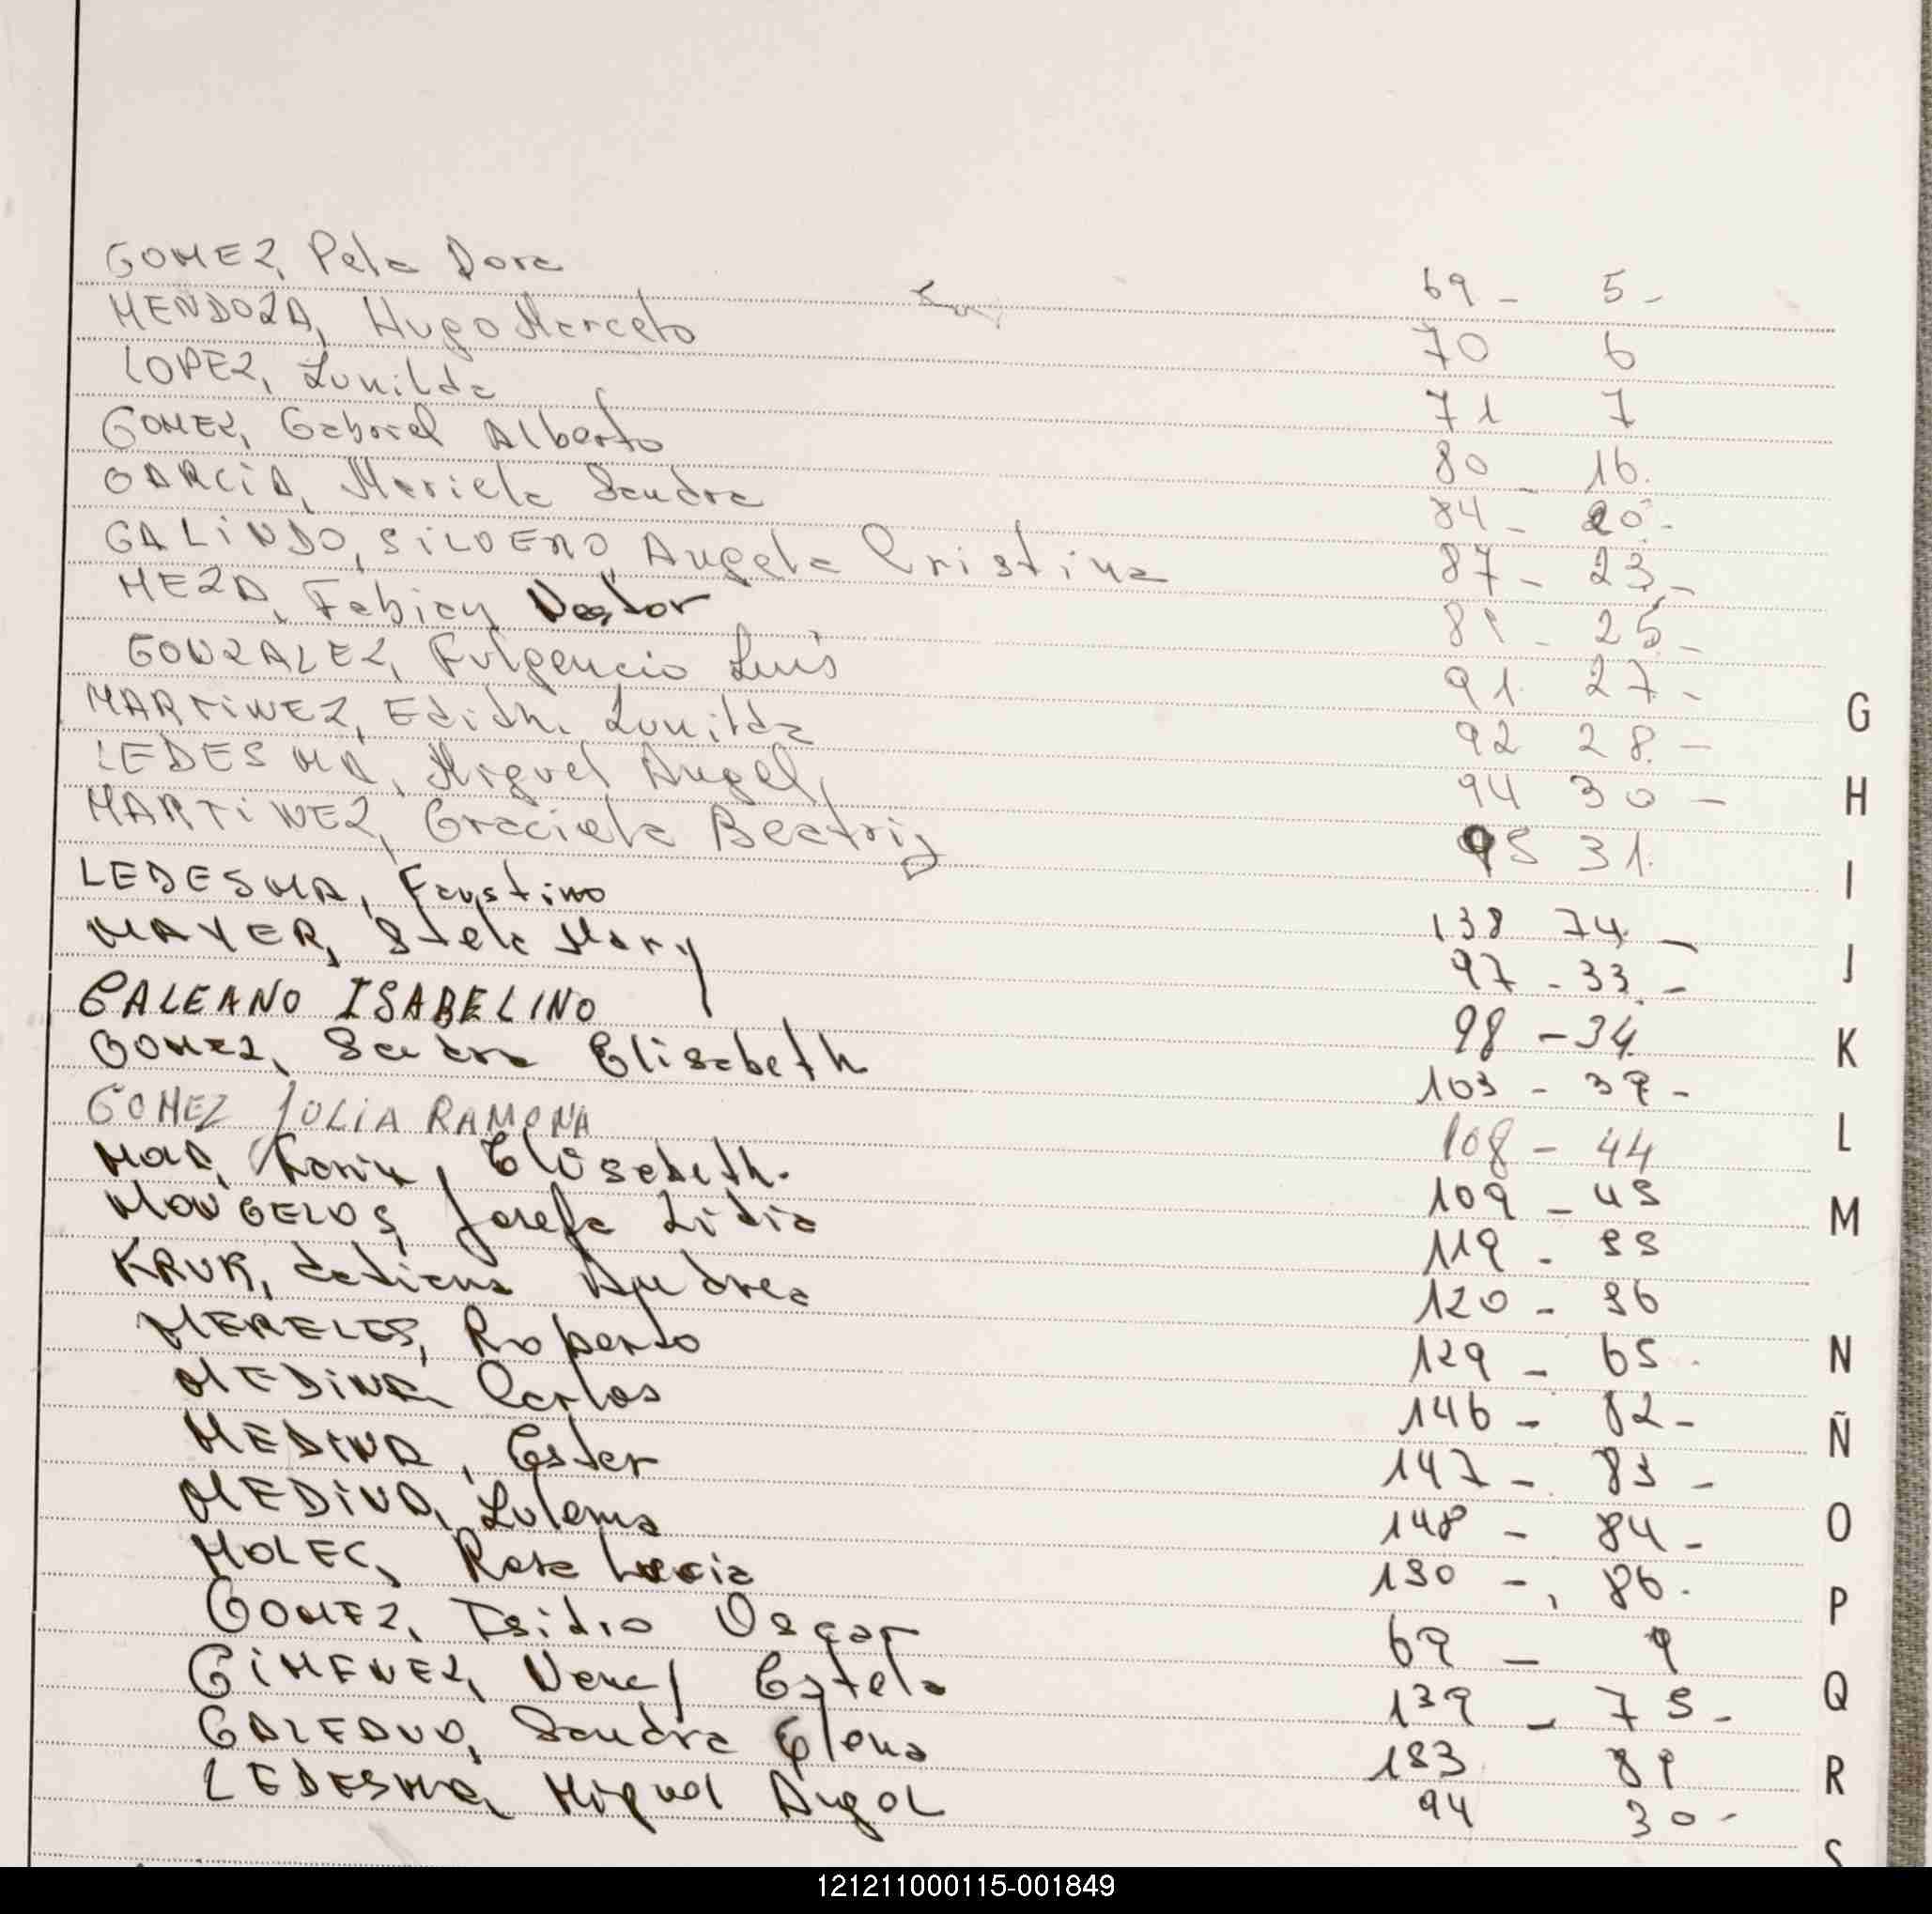 GOMEZ, Pela Dora 69 - 5 -
MENDOZA, Hugo Marcelo 70 6
LOPEZ, Lunilda 71 7
GOMEZ, Gabriel Alberto 80 - 16.
GARCIA, Mariela Sandra 84 - 20 -
GALINDO, SILVERO, Angela Cristina 87 - 23 -
MEZA, Fabian Nestor 89 - 25 -
GONZALEZ, Fulgencio Luis 91 27 -
MARTINEZ, Edith Lunilda 92 28 -
LEDESMA, Miguel Angel, 94 30 -
MARTINEZ, Graciela Beatriz 95 31.
LEDESMA, Faustino 138 74 -
MAYER, Stela Mary 97 - 33 -
GALEANO ISABELINO 98 - 34
GOMEZ, Sandra Elisabeth 103 - 39 -
GOMEZ JULIA RAMONA 108 - 44
Karin, Elisabeth. 109 - 45
MONGELOS, Josefa Lidia 119 - 55
KRUK, Tatiana Andrea 120 - 56
MERELES, Roberto 129 - 65.
MEDINA Carlos 146 - 82 -
MEDINA, Ester 147 - 83 -
MEDINA, Zulema 148 - 84 -
MOLEC, Rosa Lucia 150 - 86.
GOMEZ, Isidro Oscar 69 - 9
GIMENEZ, Nancy Estela 139 - 75 -
GALEANO, Sandra Elena 153 89
LEDESMA Miguel Angel 94 30 -
G
H
I
J
K
L
M
N
Ñ
O
P
Q
R
S
121211000115-001849